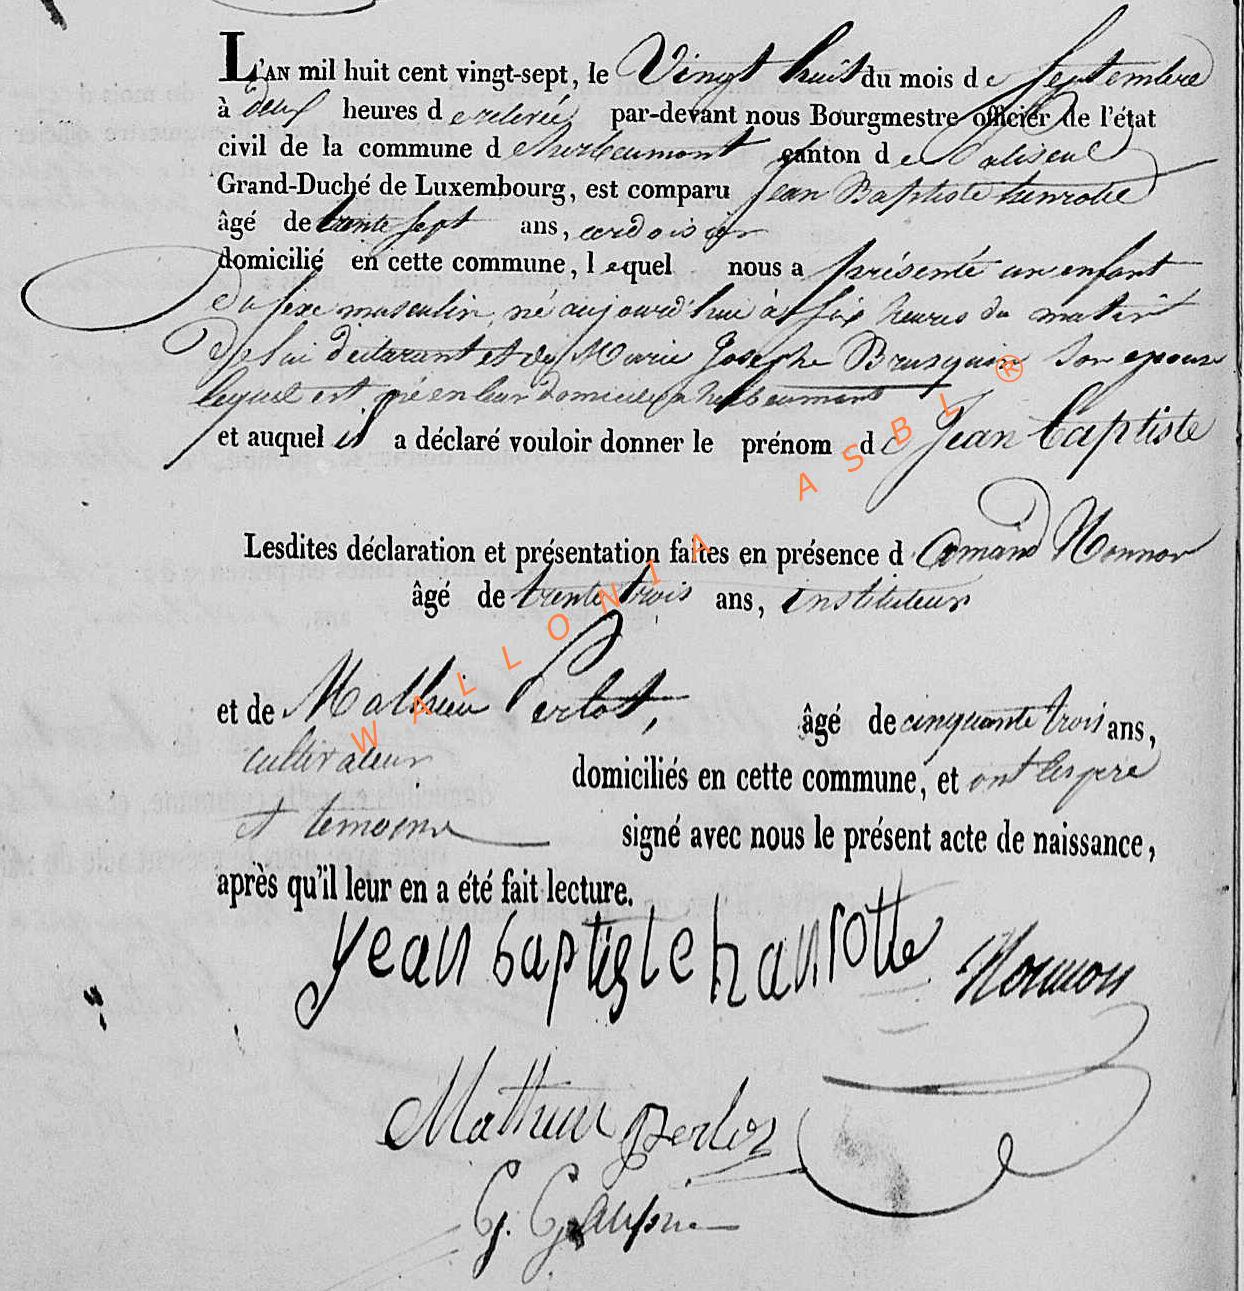 L'AN mil huit cent vingt-sept, le Vingt huit du mois de Septembre
à deux heures de relevée par-devant nous Bourgmestre officier de l'état
civil de la commune d'herbeumont canton de Paliseul
Grand-Duché de Luxembourg, est comparu Jean Baptiste henrotte
âgé de trente sept ans, ardoisier
domicilié en cette commune, lequel nous a présenté un enfant
du sexe masculin, né aujourd'hui à six heures du matin
de lui déclarant et de Marie Josephe Brusquin son epouse
lequel est né en leur domicile a herbeumont
et auquel il a déclaré vouloir donner le prénom de Jean baptiste
Lesdites déclaration et présentation faites en présence d amand
âgé de trente trois ans, instituteur
et de Mathieu Perlot,
âgé de cinquante trois ans,
cultivateur domiciliés en cette commune, et ont les pere
et temoins signé avec nous le présent acte de naissance,
après qu'il leur en a été fait lecture.
Jean baptiste hanrotte
Mathieu perlot
WALLONIA ASBL ®